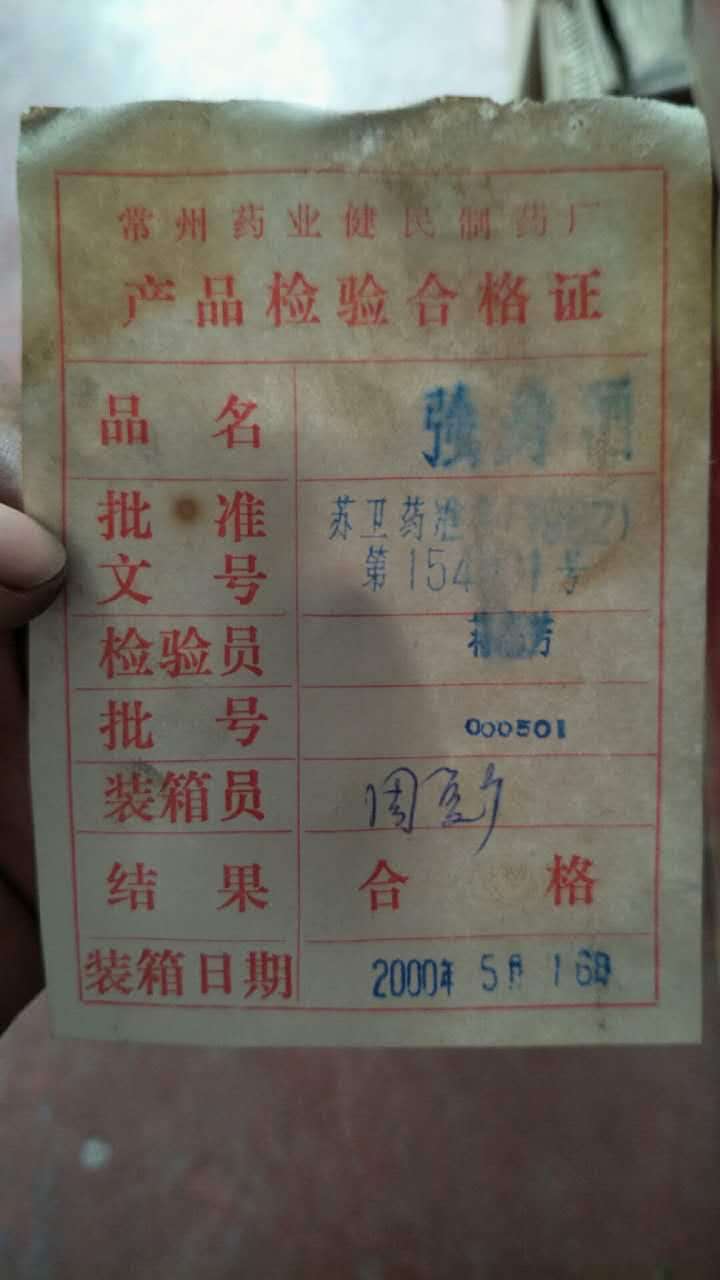 常州药业健民制药厂
产品检验合格证
品名 強身酒
批准文号 苏卫药准
第154 1号
检验员 芳
批号 000501
装箱员 周
结果 合格
装箱日期 2000年5月16日